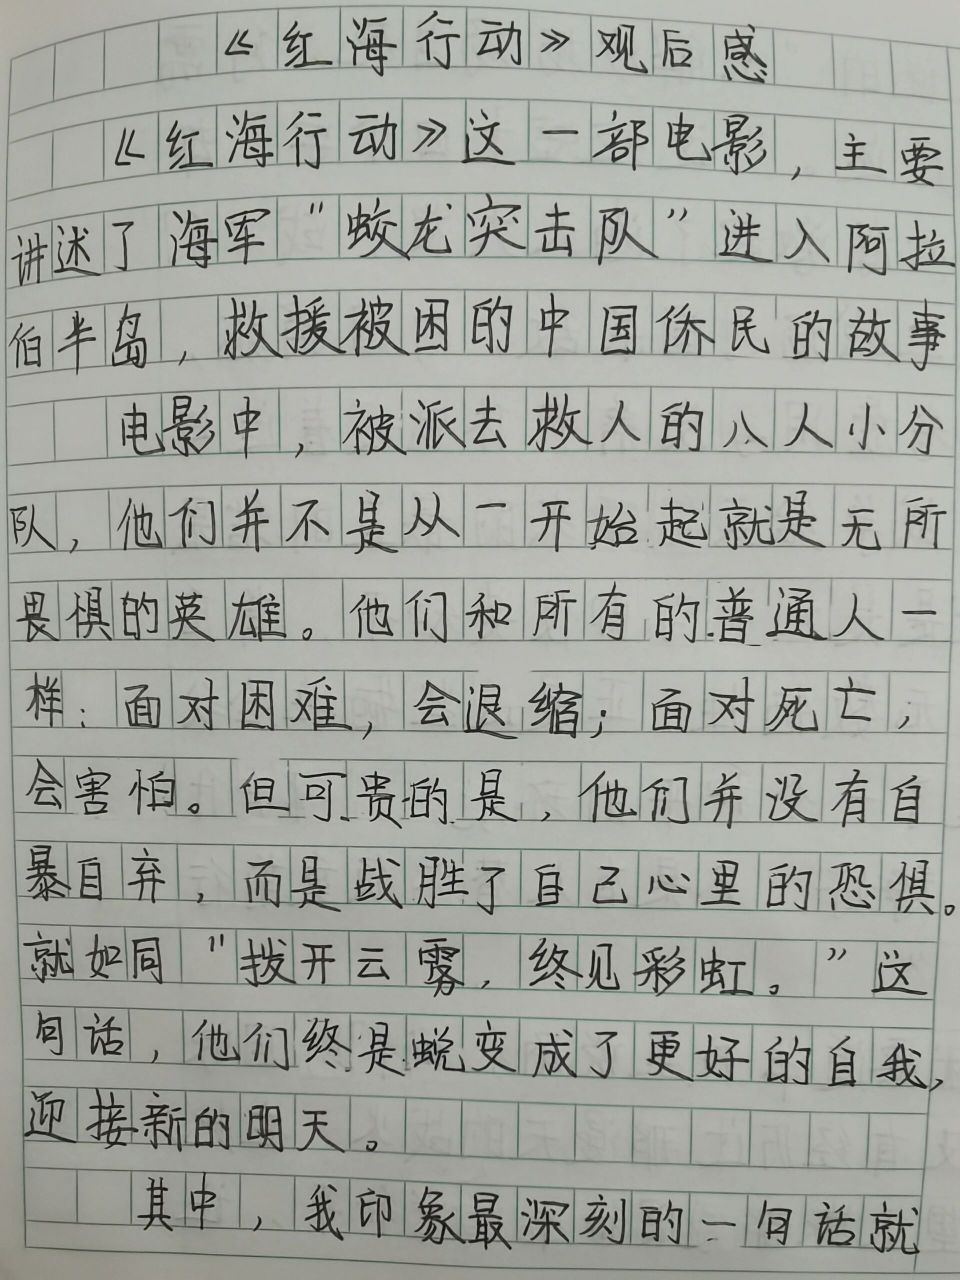 《红海行动》观后感
《红海行动》这一部电影，主要
讲述了海军“蛟龙突击队”进入阿拉
伯半岛，救援被困的中国侨民的故事
电影中，被派去救人的八人小分
队，他们并不是从一开始起就是无所
畏惧的英雄。他们和所有的普通人一
样：面对困难，会退缩；面对死亡，
会害怕。但可贵的是，他们并没有自
暴自弃，而是战胜了自己心里的恐惧。
就如同“拨开云雾，终见彩虹。”这
句话，他们终是蜕变成了更好的自我，
迎接新的明天。
其中，我印象最深刻的一句话就